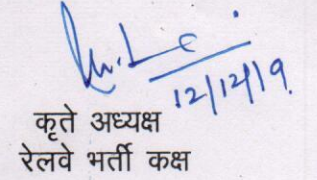 12/12/19
कृते अध्यक्ष
रेलवे भर्ती कक्ष